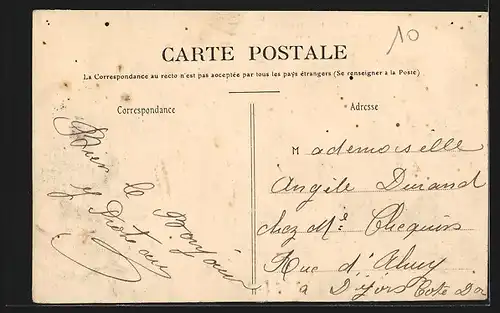 10
CARTE POSTALE
La Correspondance au recto n'est pas acceptée par tous les pays étrangers (Se renseigner à la Poste)
Correspondance
Adresse
Bien le Bonjour
Mademoiselle
Angèle Durand
chez Mr
Rue d'
a Côte Dor